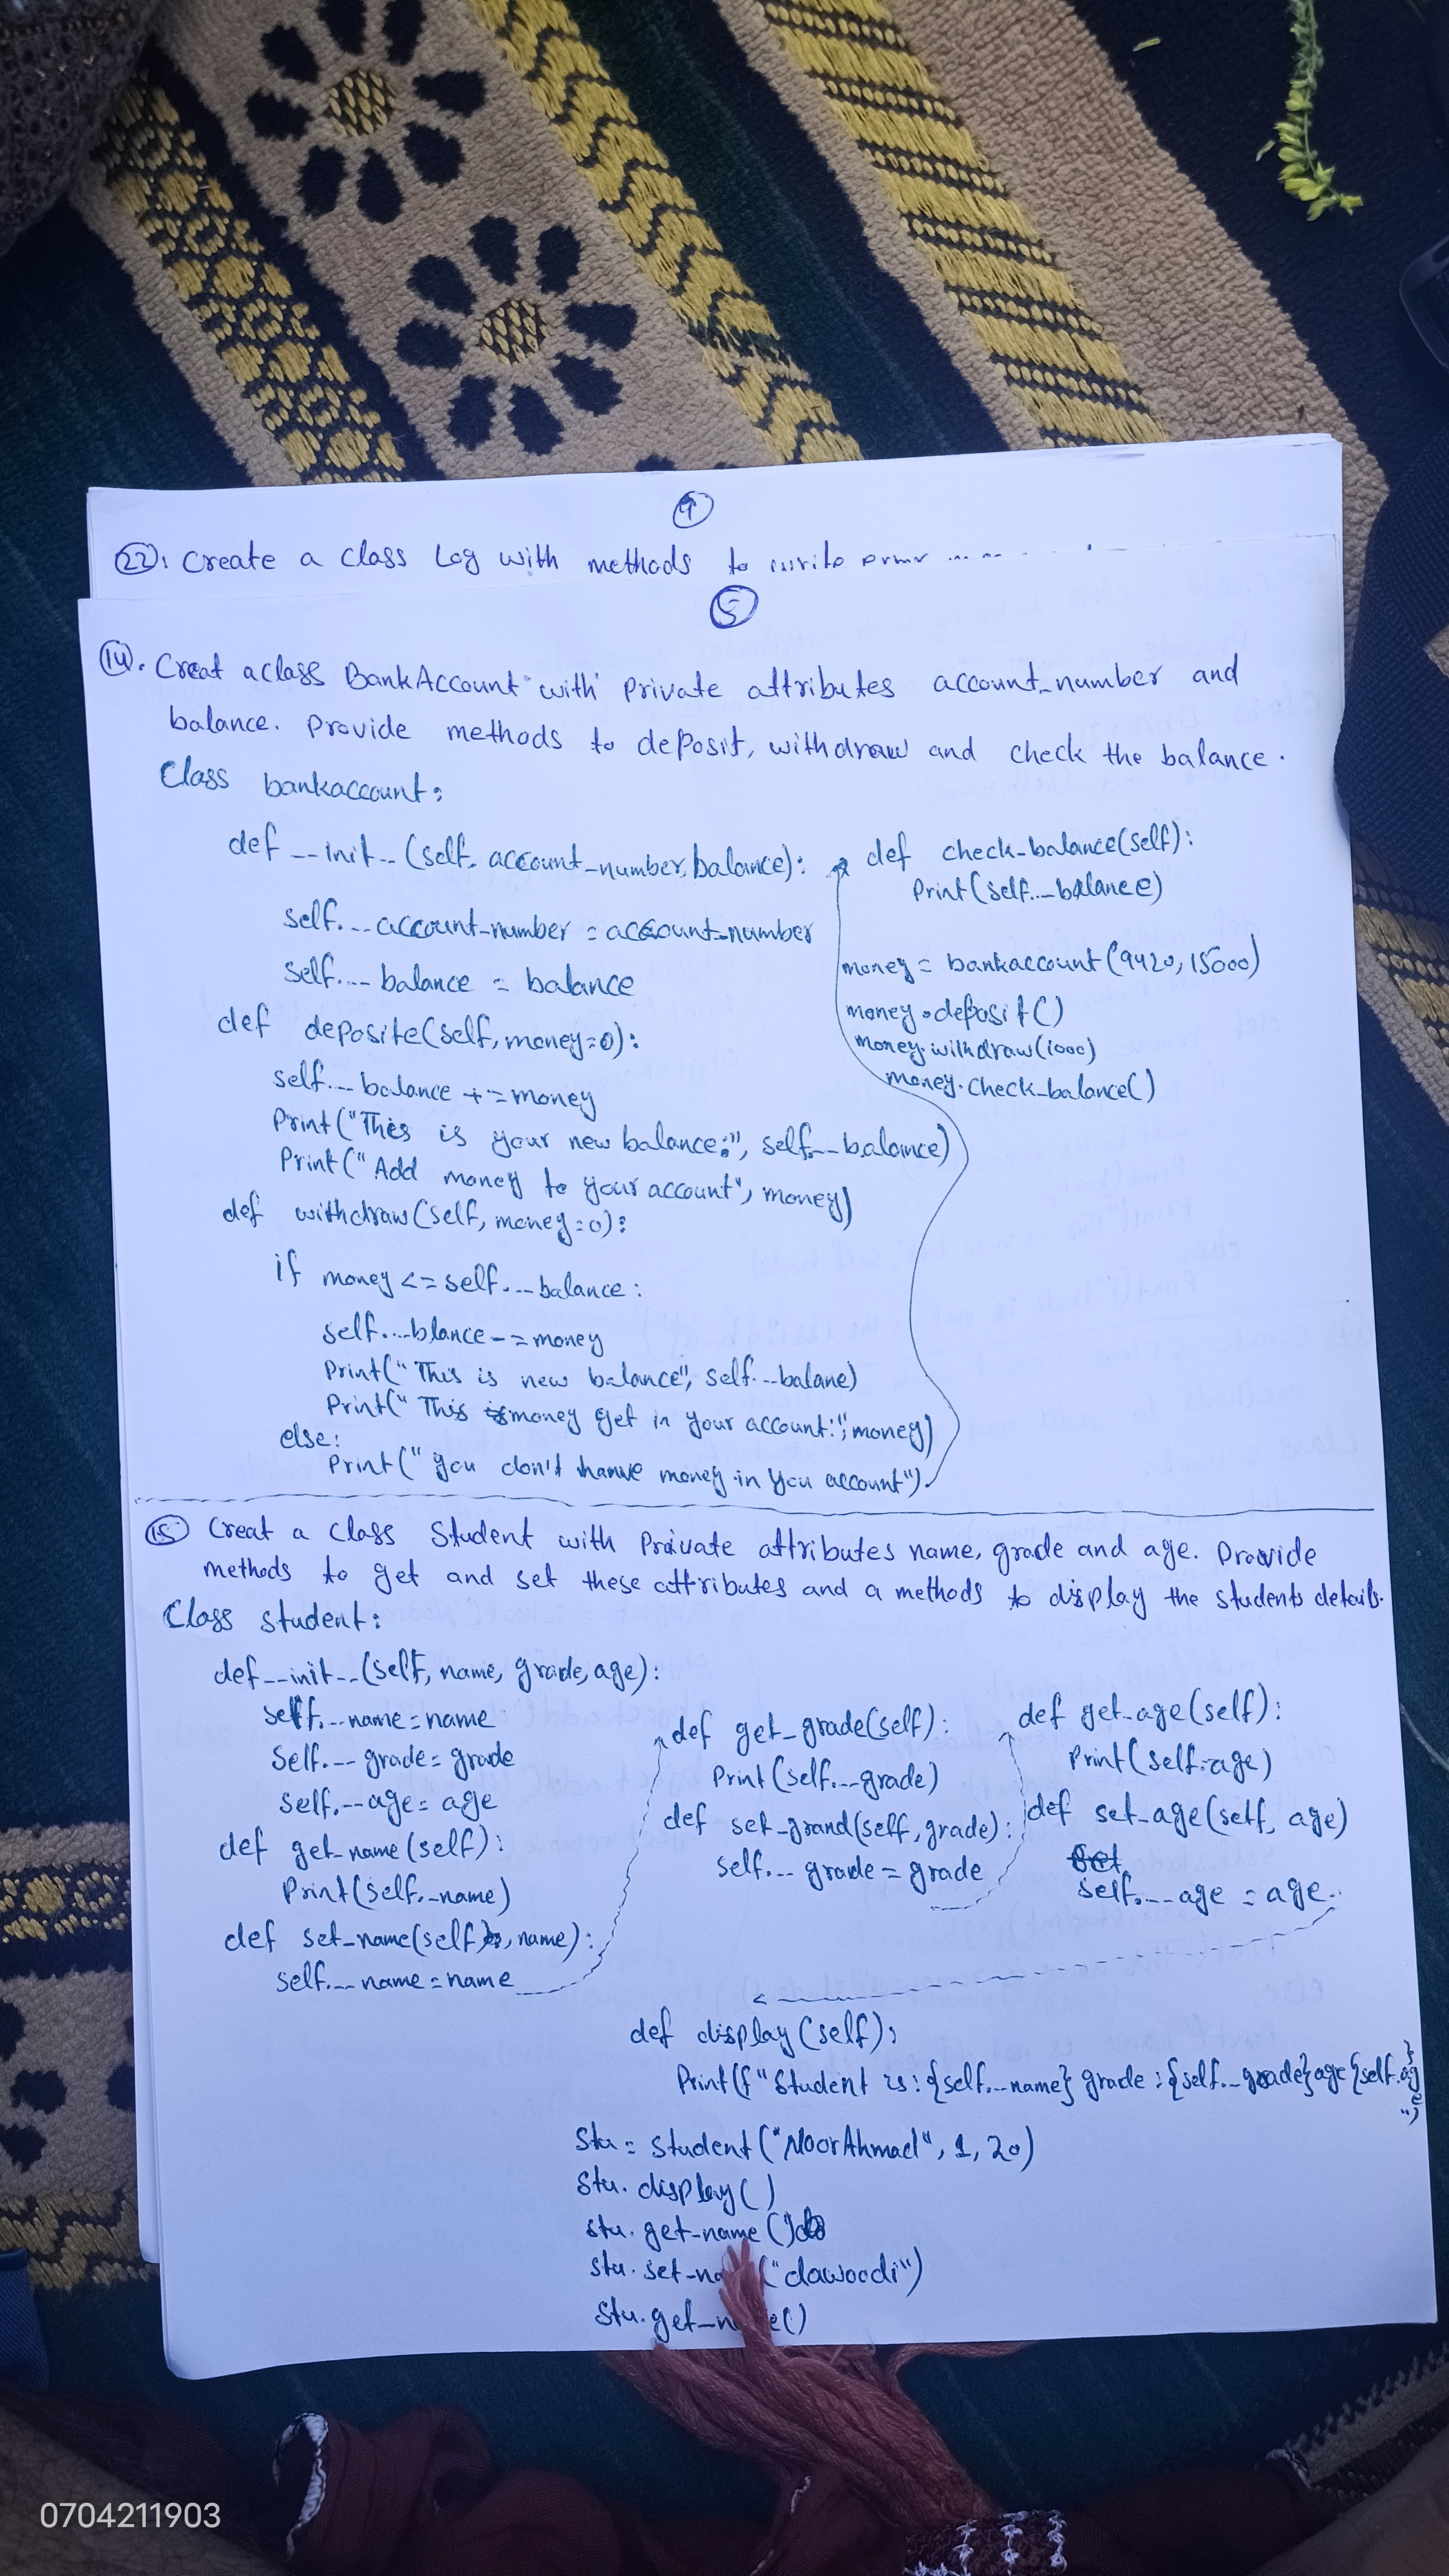 9
22: Create a class Log with methods to write
5
14. Creat a class BankAccount with Private attributes account_number and
balance. Provide methods to deposit, withdraw and check the balance.
Class bankaccount:
def __init__(self, account_number, balance):
self.__account_number = account_number
self.__balance = balance
def deposite(self, money=0):
self.__balance += money
Print("This is your new balance:", self.__balance)
Print("Add money to your account", money)
def withdraw(self, money=0):
if money <= self.__balance:
self.__blance -= money
Print("This is new balance", self.__balane)
Print("This money get in your account:", money)
else:
Print("you don't hanve money in you account")
def check_balance(self):
Print(self.__balance)
money = bankaccount(9420, 15000)
money.deposit()
money.withdraw(1000)
money.check_balance()
15 Creat a class Student with Private attributes name, grade and age. Provide
methods to get and set these attributes and a methods to display the students details.
Class student:
def __init__(self, name, grade, age):
self.__name = name
self.__grade = grade
self.__age = age
def get_name(self):
Print(self.__name)
def set_name(self, name):
self.__name = name
def get_grade(self):
Print(self.__grade)
def set_grand(self, grade):
self.__grade = grade
def get_age(self):
Print(self.age)
def set_age(self, age)
self.__age = age
def display(self):
Print(f"Student is: {self.__name} grade: {self.__grade} age {self.age}")
Stu = student("NoorAhmad", 1, 20)
Stu.display()
stu.get_name()
stu.set_na ("dawoodi")
Stu.get_n e()
0704211903